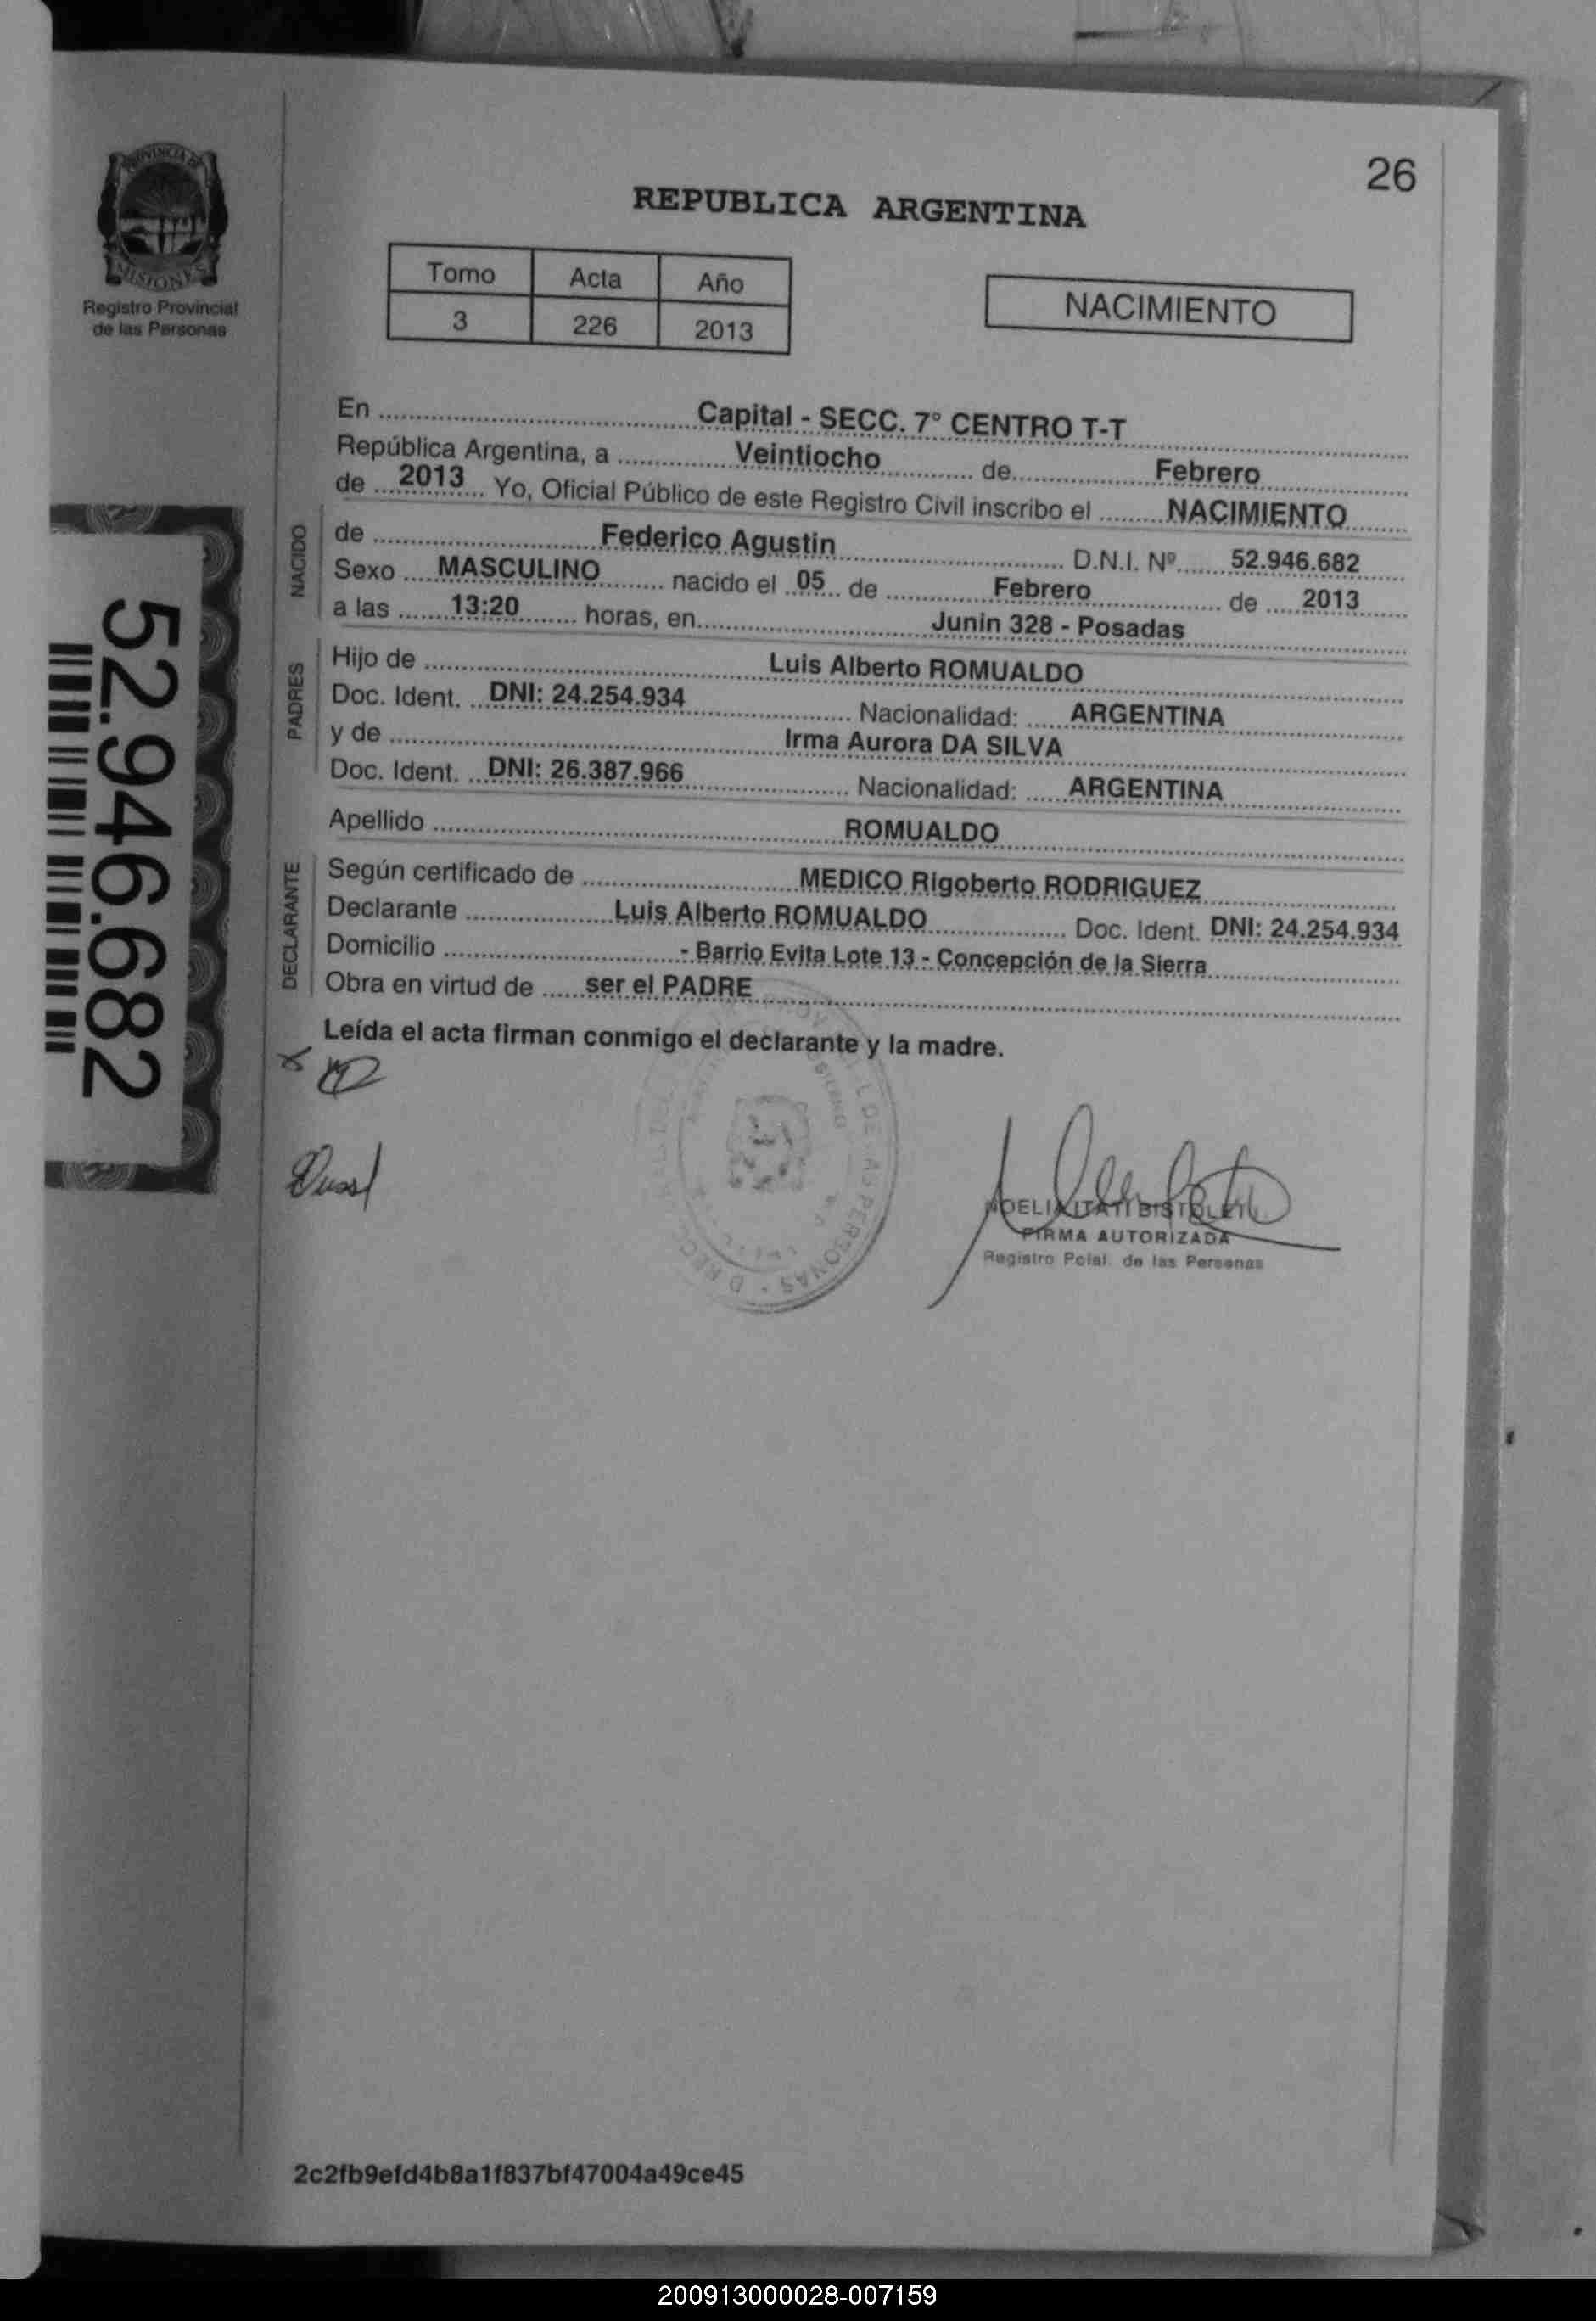 26
PROVINCIA DE
MISIONES
Registro Provincial
de las Personas
REPUBLICA ARGENTINA
Tomo Acta Año
3 226 2013
NACIMIENTO
En Capital - SECC. 7° CENTRO T-T
República Argentina, a Veintiocho de Febrero
de 2013 Yo, Oficial Público de este Registro Civil inscribo el NACIMIENTO
NACIDO
de Federico Agustin D.N.I. Nº 52.946.682
Sexo MASCULINO nacido el 05 de Febrero de 2013
a las 13:20 horas, en Junin 328 - Posadas
PADRES
Hijo de Luis Alberto ROMUALDO
Doc. Ident. DNI: 24.254.934 Nacionalidad: ARGENTINA
y de Irma Aurora DA SILVA
Doc. Ident. DNI: 26.387.966 Nacionalidad: ARGENTINA
Apellido ROMUALDO
DECLARANTE
Según certificado de MEDICO Rigoberto RODRIGUEZ
Declarante Luis Alberto ROMUALDO Doc. Ident. DNI: 24.254.934
Domicilio - Barrio Evita Lote 13 - Concepción de la Sierra
Obra en virtud de ser el PADRE
Leída el acta firman conmigo el declarante y la madre.
52.946.682
DE LAS PERSONAS
FIRMA AUTORIZADA
Registro Pcial. de las Personas
2c2fb9efd4b8a1f837bf47004a49ce45
200913000028-007159